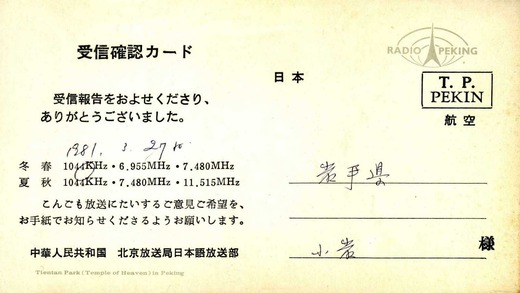 受信確認カード
受信報告をおよせくださり、
ありがとうございました。
1981. 3. 27
冬 春 1044KHz・6.955MHz・7.480MHz
夏 秋 1044KHz・7.480MHz・11.515MHz
こんごも放送にたいするご意見ご希望を、
お手紙でお知らせくださるようお願いします。
中華人民共和国 北京放送局日本語放送部
Tientan Park (Temple of Heaven) in Peking
RADIO PEKING
日本
T. P.
PEKIN
航空
岩手県
小岩
様